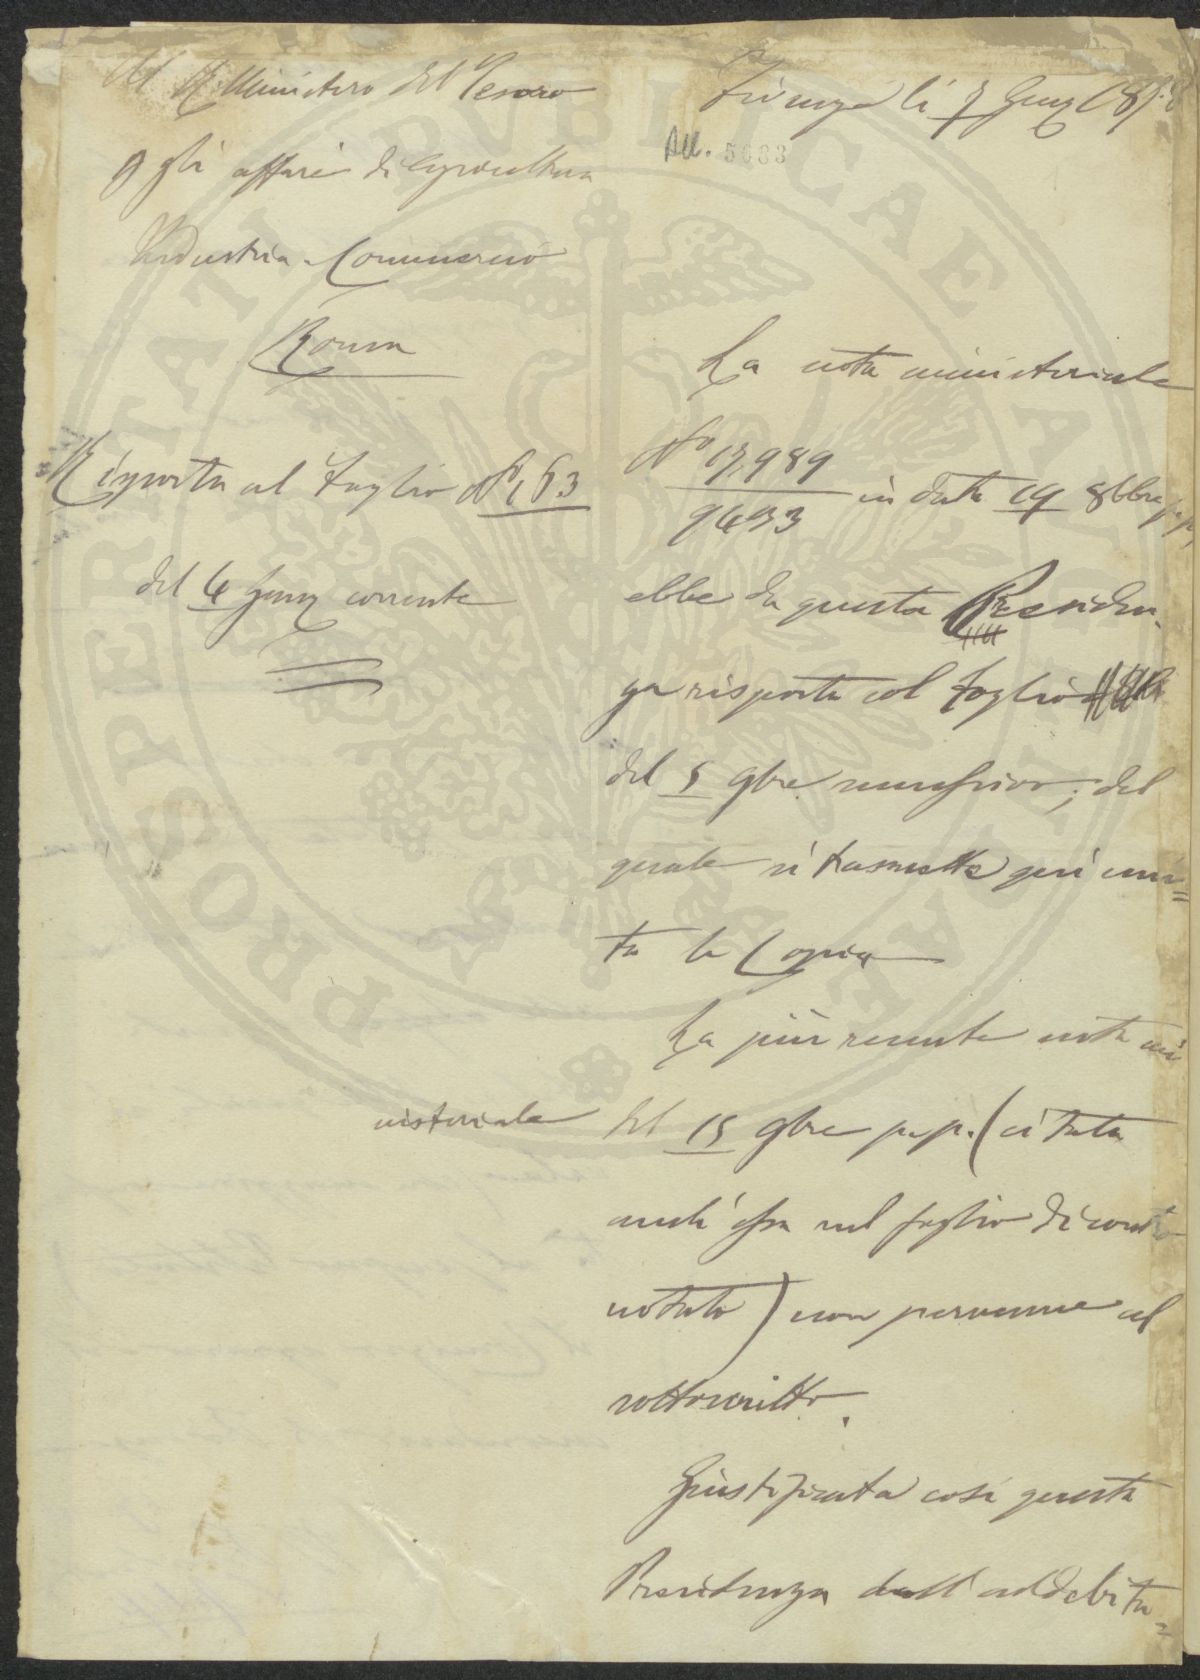 Al R. Ministero del Tesoro
p gli affari di Agricoltura
Industria e Commercio
Roma
Risposta al foglio N° 163
del 4 Genn corrente
Firenze li 7 Genn 1878
All. 5683
La nota ministeriale
N° 17,989
9433
in data 19 8bbre p.p,
ebbe da questa Presiden-
za risposta col foglio
del 5 9bre successivo; del
quale si trasmette qui uni=
ta la Copia
La più recente nota mi
nisteriale del 15 9bre p.p. (citata
anch'essa nel foglio di contro
notato) non pervenne al
sottoscritto.
Giustificata così questa
Presidenza dall'addebita=
PROSPERITATI PVBLICAE AVGENDAE